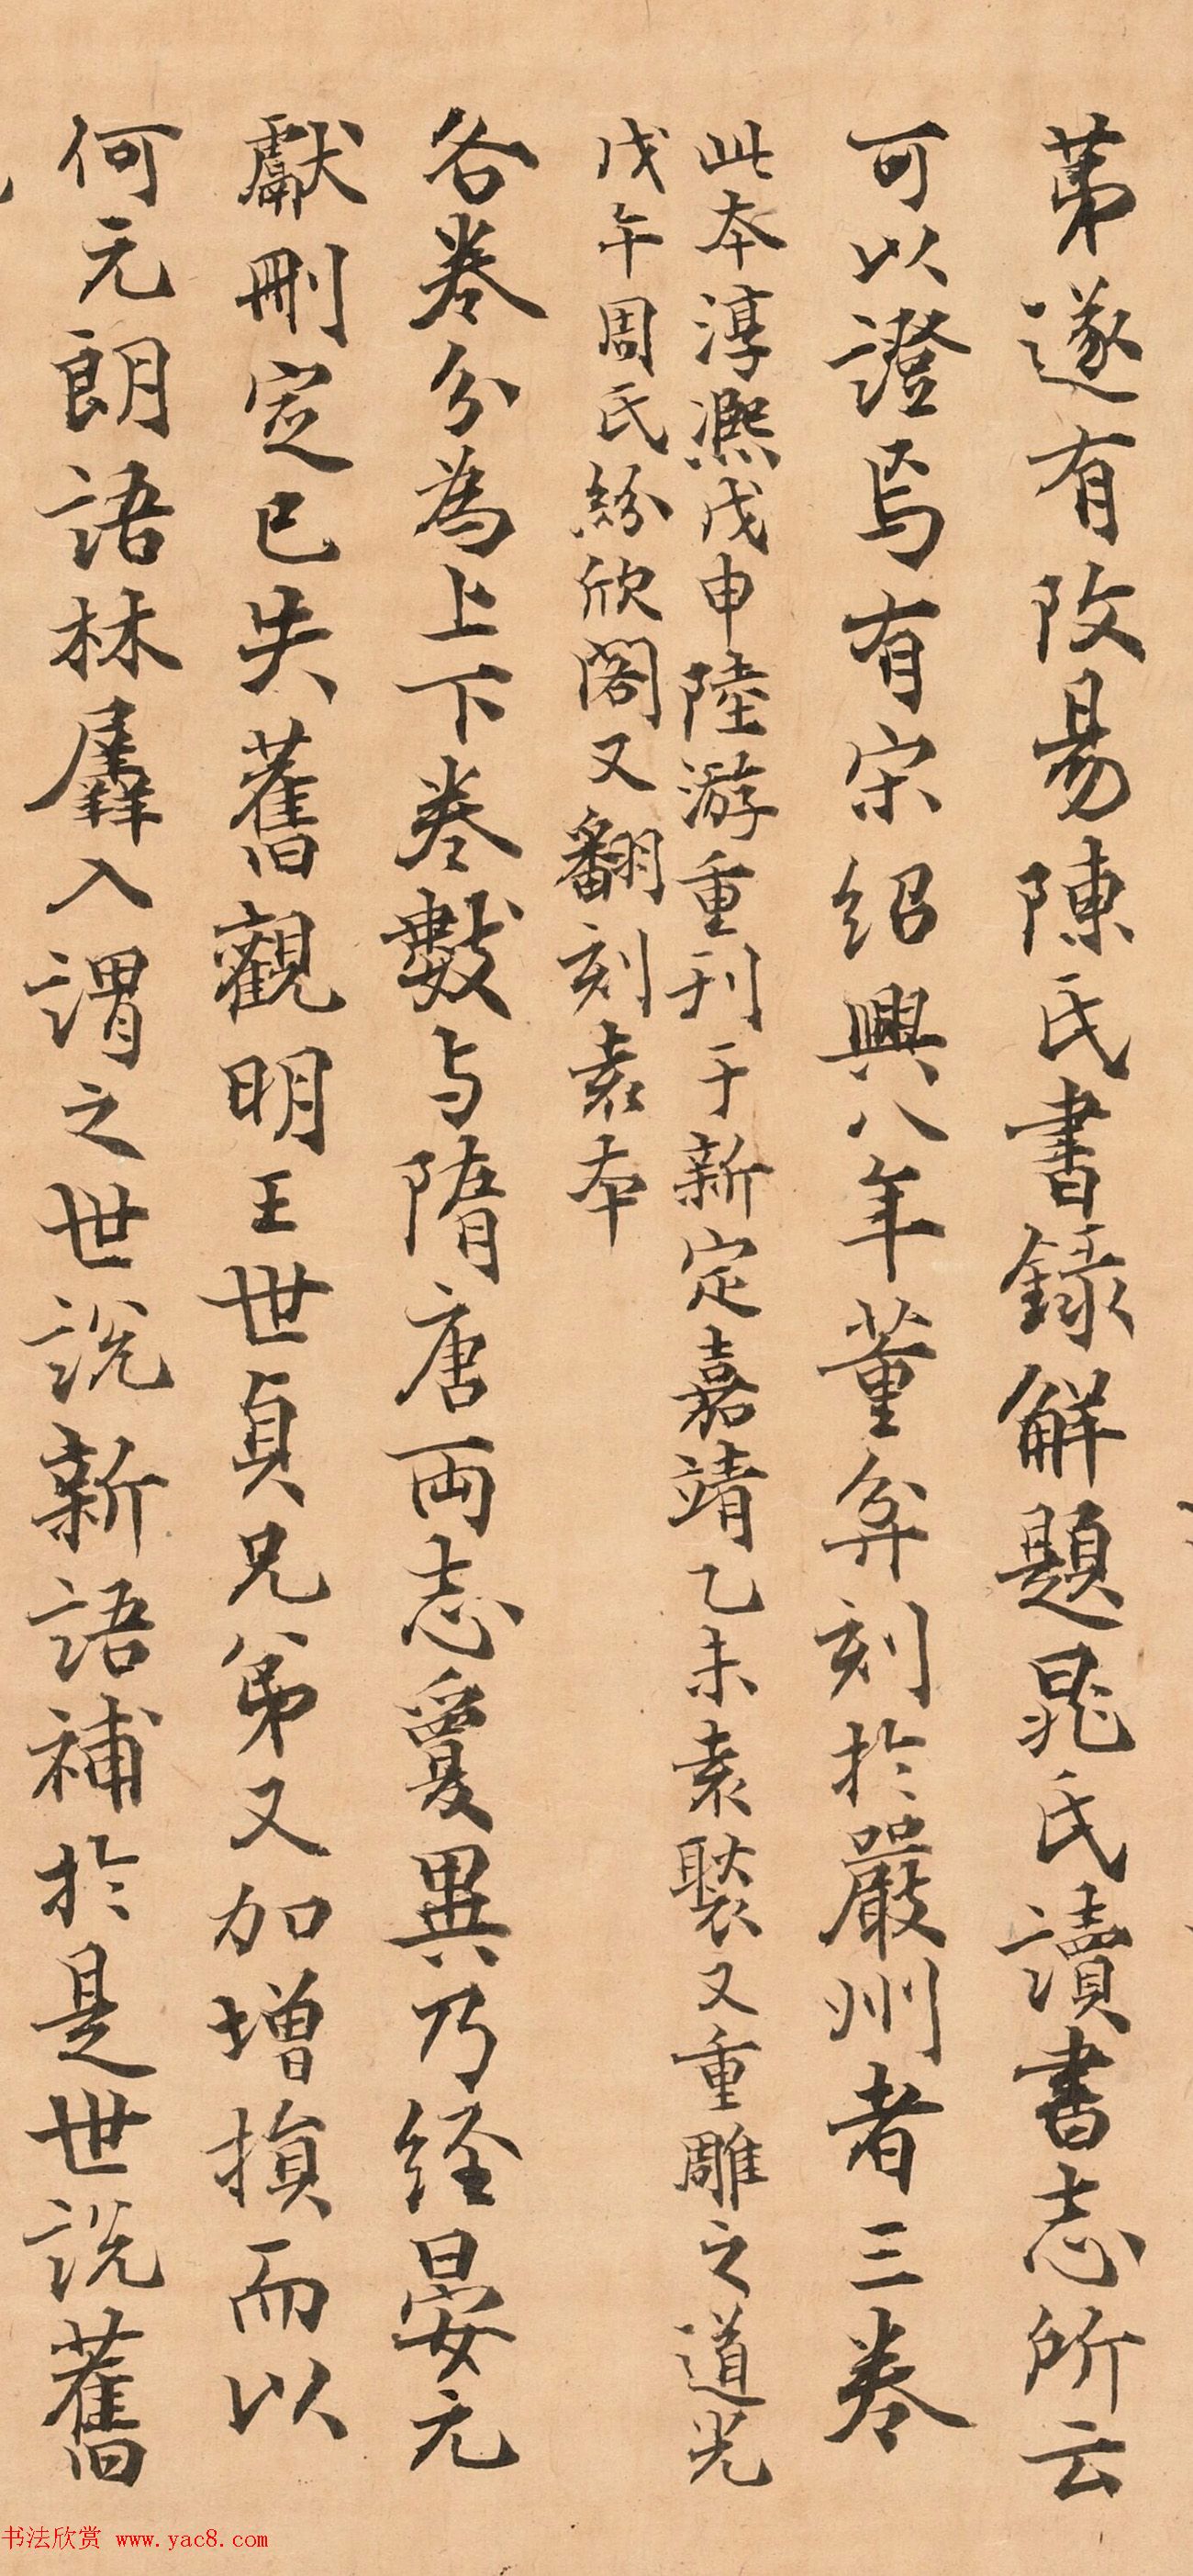 苐遂有改易陳氏書錄解題晁氏讀書志所云
可以證焉有宋紹興八年董弅刻於嚴州者三卷
此本淳熈戊申陸游重刊于新定嘉靖乙未袁褧又重雕之道光
戊午周氏紛欣閣又翻刻袁本
各卷分為上下卷數与隋唐両志夐異乃經晏元
獻刪定已失舊觀明王世貞兄弟又加增損而以
何元朗語林羼入謂之世說新語補於是世說舊
书法欣赏 www.yac8.com